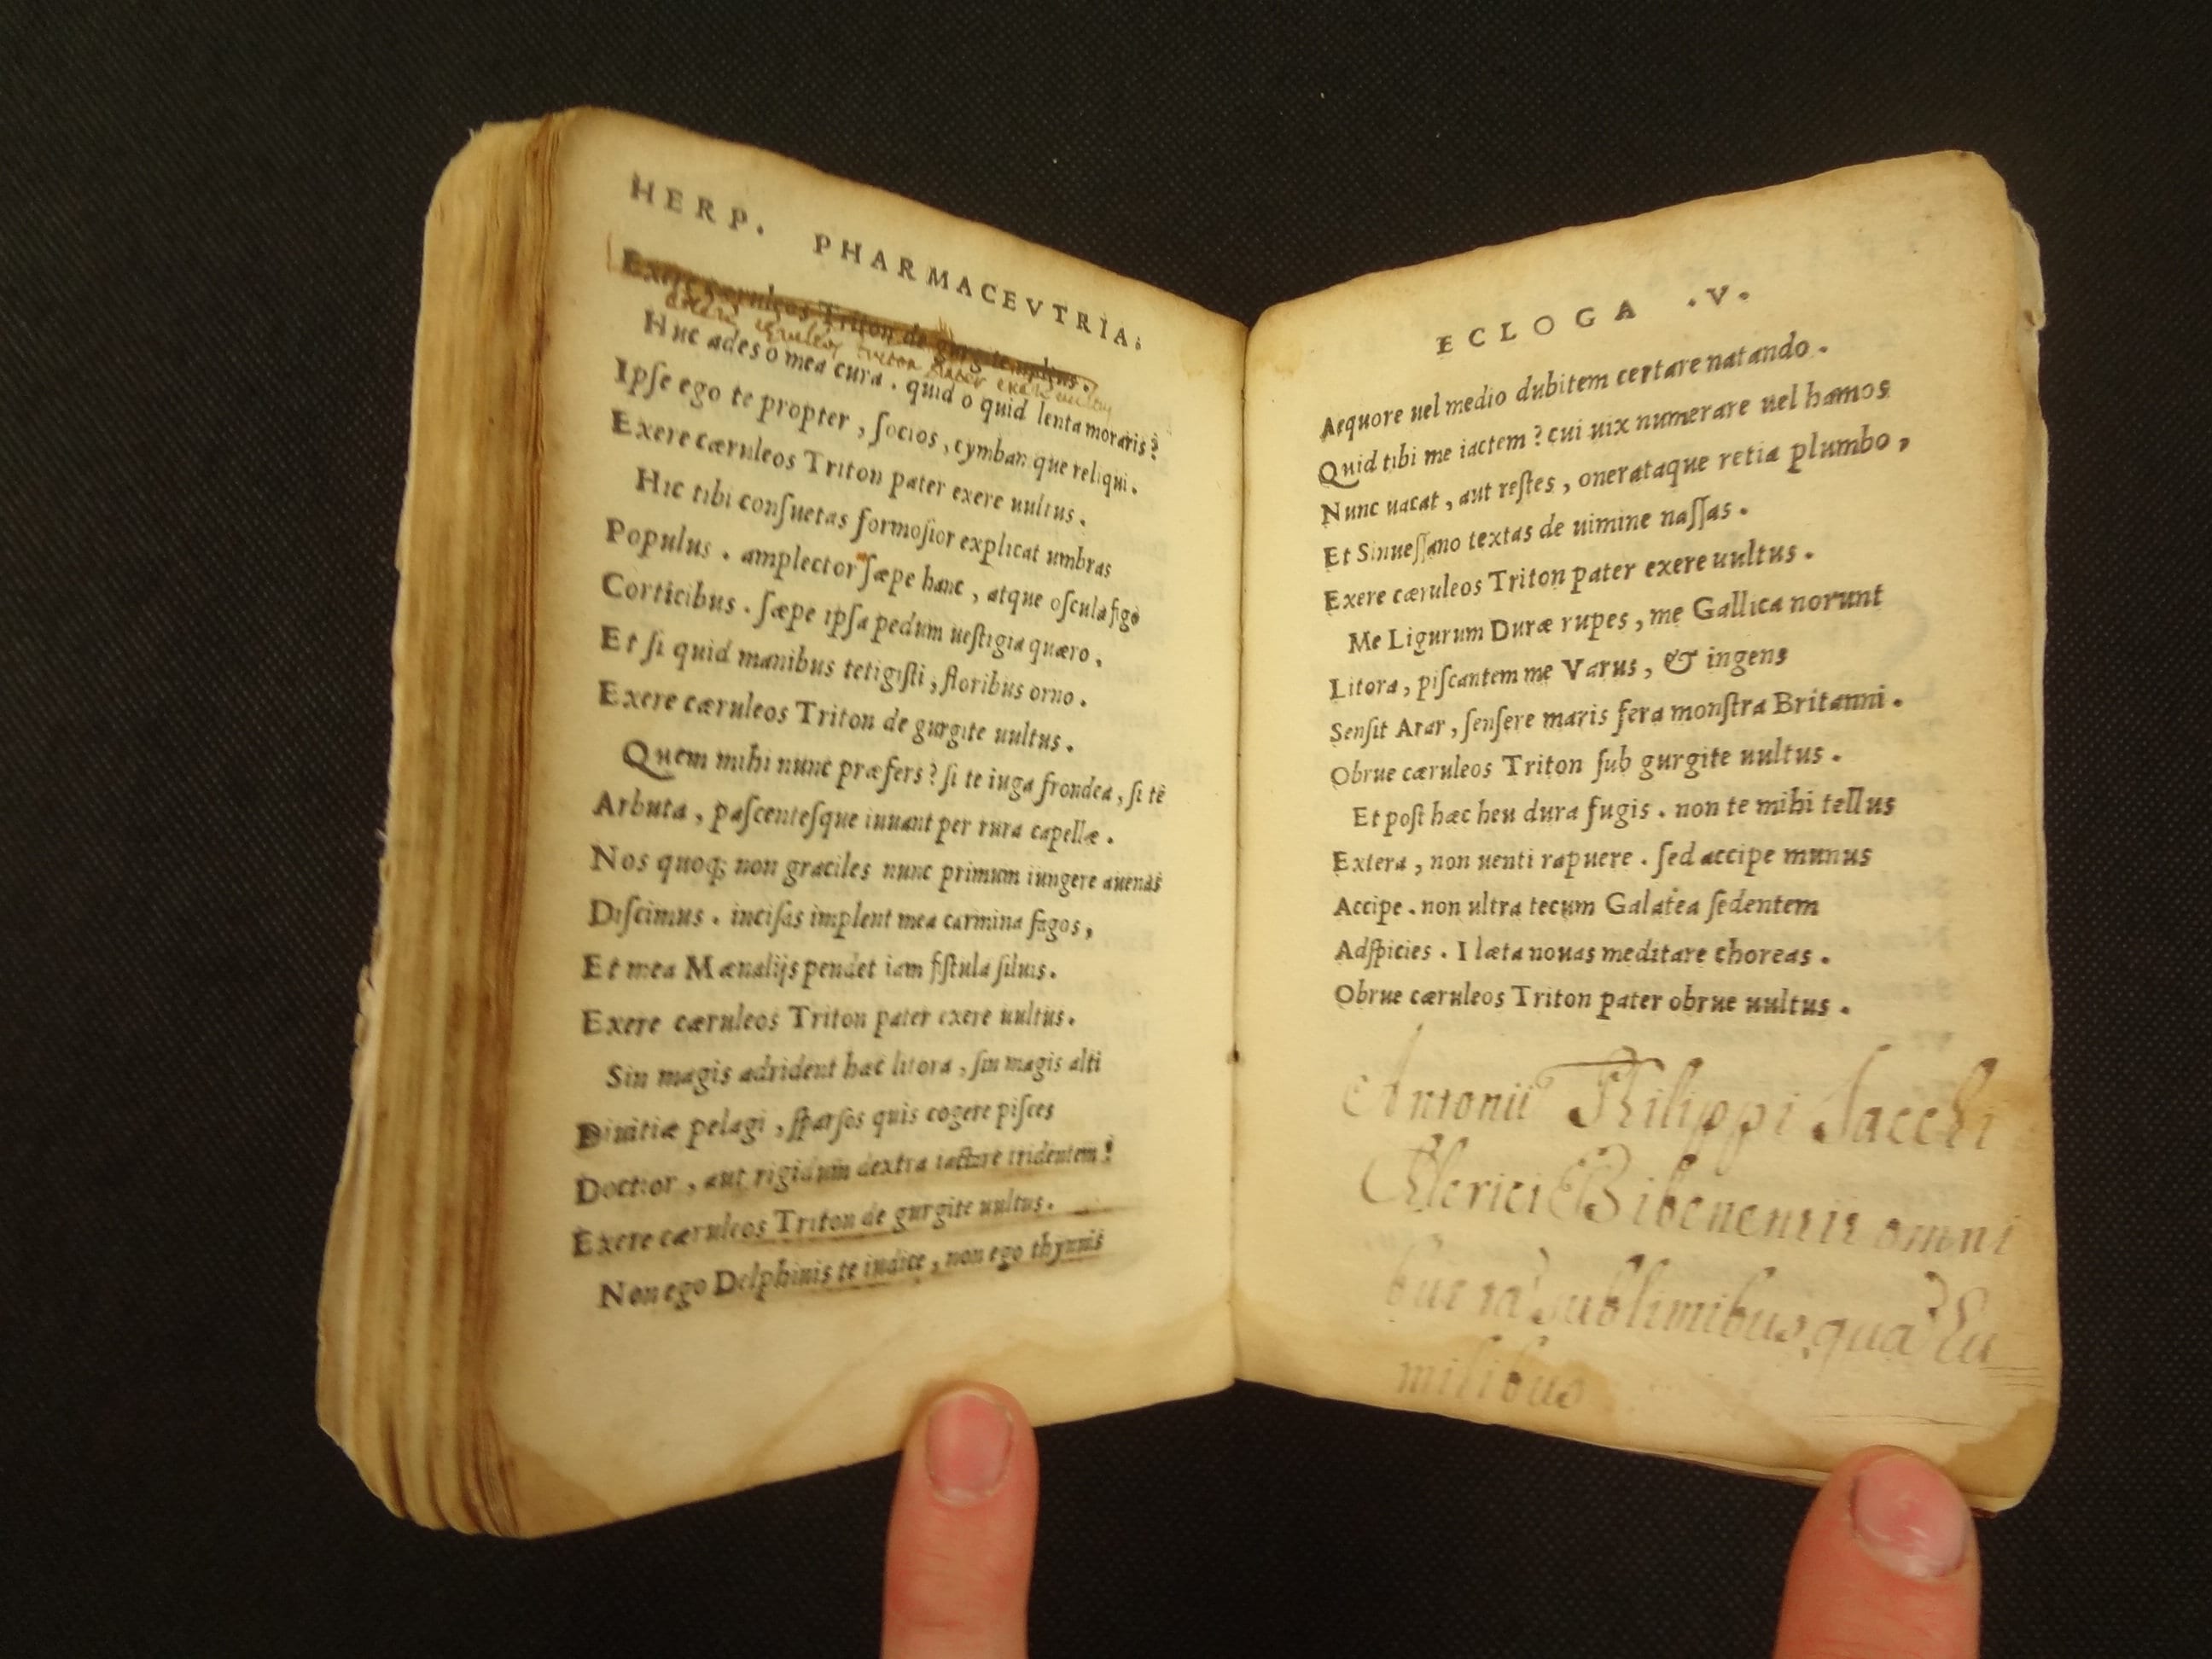 HERP. PHARMACEVTRIA:
Exere cæruleos Triton de gurgite uultus.
Triton pater exere uultus
Huc ades o mea cura. quid o quid lenta moraris?
Ipſe ego te propter, ſocios, cymbamque reliqui.
Exere cæruleos Triton pater exere uultus.
Hic tibi conſuetas formoſior explicat umbras
Populus. amplector ſæpe hanc, atque oſcula figo
Corticibus. ſæpe ipſa pedum ueſtigia quæro.
Et ſi quid manibus tetigiſti, floribus orno.
Exere cæruleos Triton de gurgite uultus.
Quem mihi nunc præfers? ſi te iuga frondea, ſi te
Arbuta, paſcenteſque iuuant per rura capellæ.
Nos quoq; non graciles nunc primum iungere auenas
Diſcimus. inciſas implent mea carmina fagos,
Et mea Mænalijs pendet iam fiſtula ſiluis.
Exere cæruleos Triton pater exere uultus.
Sin magis adrident hæc litora, ſin magis alti
Diuitiæ pelagi, ſparſos quis cogere piſces
Doctior, aut rigidum dextra iactare tridentem?
Exere cæruleos Triton de gurgite uultus.
Non ego Delphinis te iudice, non ego thynnis
ECLOGA .V.
Aequore uel medio dubitem certare natando.
Quid tibi me iactem? cui uix numerare uel hamos
Nunc uacat, aut reſtes, onerataque retia plumbo,
Et Sinueſſano textas de uimine naſſas.
Exere cæruleos Triton pater exere uultus.
Me Ligurum Duræ rupes, me Gallica norunt
Litora, piſcantem me Varus, & ingens
Senſit Arar, ſenſere maris fera monſtra Britanni.
Obrue cæruleos Triton ſub gurgite uultus.
Et poſt hæc heu dura fugis. non te mihi tellus
Extera, non uenti rapuere. ſed accipe munus
Accipe. non ultra tecum Galatea ſedentem
Adſpicies. I læta nouas meditare choreas.
Obrue cæruleos Triton pater obrue uultus.
Antonii Philippi Sacchi
Clerici Bibenensis omni
sublimibus, qua
milibus